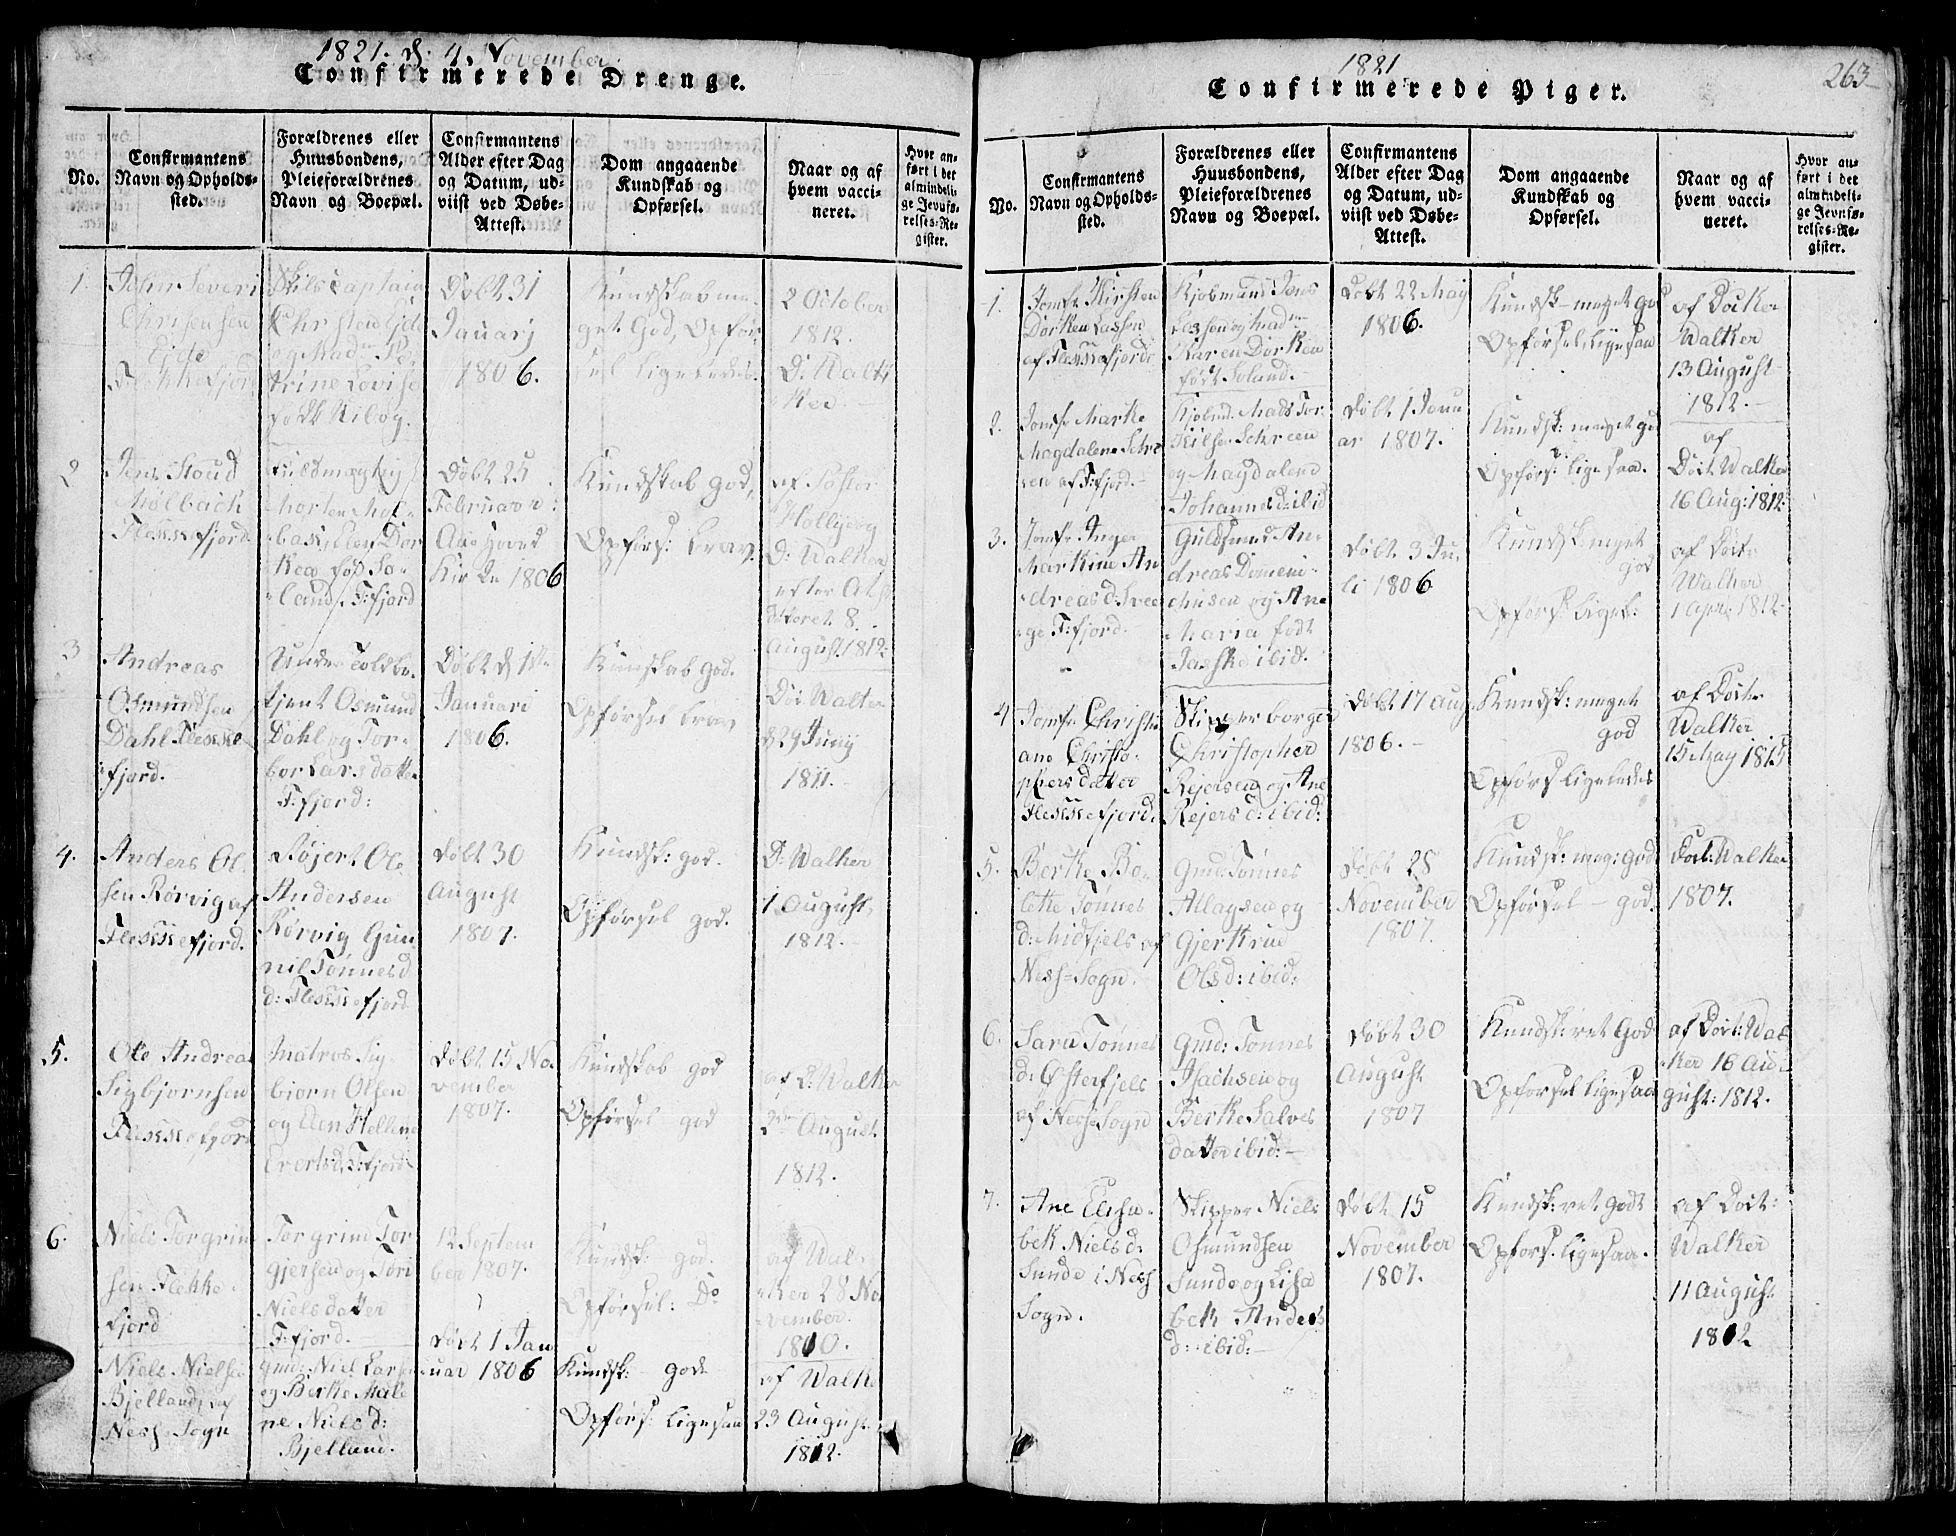 1821. d: 4. November.
Confirmerede Drenge.
No.
Confirmantens
Navn og Opholds-
sted.
Forældrenes eller
Huusbondens,
Pleieforældrenes
Navn og Boepæl.
Confirmantens
Alder efter Dag
og Datum, ud-
viist ved Døbe-
Attest.
Dom angaaende
Kundskab og
Opførsel.
Naar og af
hvem vacci-
neret.
Hvor an-
ført i det
almindeli-
ge Jevnfø-
relses-Re-
gister.
1.
John Severi
Christensen
Eide
Flekkefjord
Skibs captain
Christen Eide
og Madm Pe-
trine Lovise
født
Døbt 31
Januarj
1806.
Kundskab me-
get God, Opfør
sel ligeledes.
2 October
1812.
D: Walt
ker
2
Jens Stoud
Mølbach
Flekkefjord
Fuldmægtig
Morten Møl-
bak, Ellen Dor
kea fød So-
land, F:fjord
Døbt 25
Februar:
1806
Kundskab god,
Opførs: brav.
af
D: Walker
efter At-
8
August 1812
3
Andreas
Osmundsen
Dahl Flekke
fjord.
Under Toldbe-
tjent Osmund
Dahl og Tor-
bor Larsdatter
F:fjord:
Døbt d 1ste
Januari
1806.
Kundskab god.
Opførsel brav
Doi Walker
d 29 Junij
1811.
4.
Anders Ol-
sen Rørvig af
Flekkefjord.
Ole
Andersen
Rørvig Gun
nil Tønnesd
d: Flekkefjord
døbt 30
August
1807.
Kundsk: god.
Opførsel god.
D: Walker
1 August
1812.
5.
Ole Andreas
Sigbjornsen
Flekkefjord
Matros Sig-
biorn Olsen
og Elen Hellene
Evertsd, F:fjord
døbt 15 No-
vember
1807.
Kundskab god
Opførsel god
af D: Walker
2den August
1812.
6.
Niels Torgrim
sen Flekke-
fjord
Torgrim Tor
gjersen og Tori
Nielsdatter
F:fjord.
12 Septem
ber 1807.
Kundsk: god.
Opførsel: Do
af Wal-
ker 28 No-
vember.
1810.
Niels Nielsen
Bjelland, af
Ness Sogn
gmd: Niel Larsen
og Berte Male
ne Nielsd:
Bjelland.
døbt 1 Jan
uar 1806
Kundsk: god
Opførs: ligesaa
af Walke
23 August
1812.
1821
263
Confirmerede Piger.
No.
Confirmantens
Navn og Opholds-
sted.
Forældrenes eller
Huusbondens,
Pleieforældrenes
Navn og Boepæl.
Confirmantens
Alder efter Dag
og Datum, ud-
viist ved Døbe-
Attest.
Dom angaaende
Kundskab og
Opførsel.
Naar og af
hvem vacci-
neret.
Hvor an-
ført i det
almindeli-
ge Jevnfø-
relses-Re-
gister.
1.
Jomfr Kirsten
Dorken Lassen
af Flekkefjord
Kjøbmand Jens
Lassen og Madm
Karen Dorken
født Soland.
døbt 22 Maj
1806.
Kundsk meget god
Opførsel, ligesaa
af Docter
Walker
13 August
1812.
2.
Jomfr Marte
Magdalene Schre
en af F:fjord.
Kjøbmd. Mads Tor-
kilsen Schreen
og Magdalene
Johannesd: ibid
døbt 1 Janu
ar 1807.
Kundsk: meget god
Opførs: ligesaa.
af
Doct. Walker
16 Aug: 1812
3.
Jomfr Inger
Martine An
dreasd:
F:fjord.
Guldsmed An-
dreas
og Ane
Maria født
ibid.
døbt 3 Ju-
li 1806
Kundsk: meget
god
Opførs: ligel:
af Docter
Walker
1 Apr: 1812
4
Jomfr Christi
ane Christo-
phersdatter
Flekkefjord.
Skipper borger
Christopher
Rejersen og Ane
Rejersd: ibid:
døbt 17 Aug
1806.
Kundsk: meget
god
Opførs ligeledes
af Docter
Walker
15 May 1815
5.
Berte Bo-
lette Tønnes
d: Midfjels af
Ness Sogn.
Gmd: Tønnes
Atlagsen og
Gjertrud
Olsd: ibid:
døbt 28
November
1807.
Kundsk: meg: God
Opførsel god.
Doct: Walker
1807.
6.
Sara Tønnes
d: Østerfjels
af Ness Sogn
Gmd: Tønnes
Isachsen og
Berte Salves
datter ibid:
døbt 30
August
1807
Kundsk: ret God
Opførsel ligesaa
af Doct: Wal
ker 16 Au
gust: 1812.
7.
Ane Elisa-
bet Nielsd:
Sunde i Ness
Sogn.
Skipper Niels
Osmundsen
Sunde og Lisa
bet Anders
d: ibid:
døbt 15
November
1807.
Kundsk: ret godt
Opførs. ligesaa.
af Doct:
Walker
11 August
1812